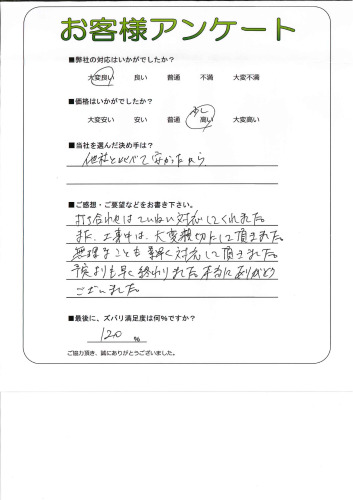 お客様アンケート
■弊社の対応はいかがでしたか?
大変良い 良い 普通 不満 大変不満
■価格はいかがでしたか?
少し
大変安い 安い 普通 高い 大変高い
■当社を選んだ決め手は?
他社と比べて安かったから
■ご感想・ご要望などをお書き下さい。
打ち合わせはていねい対応してくれました。
また、工事中は、大変親切にして頂きました。
無理なことも素早く対応して頂きました。
予定よりも早く終わりました。本当にありがとう
ございました。
■最後に、ズバリ満足度は何%ですか?
120 %
ご協力頂き、誠にありがとうございました。